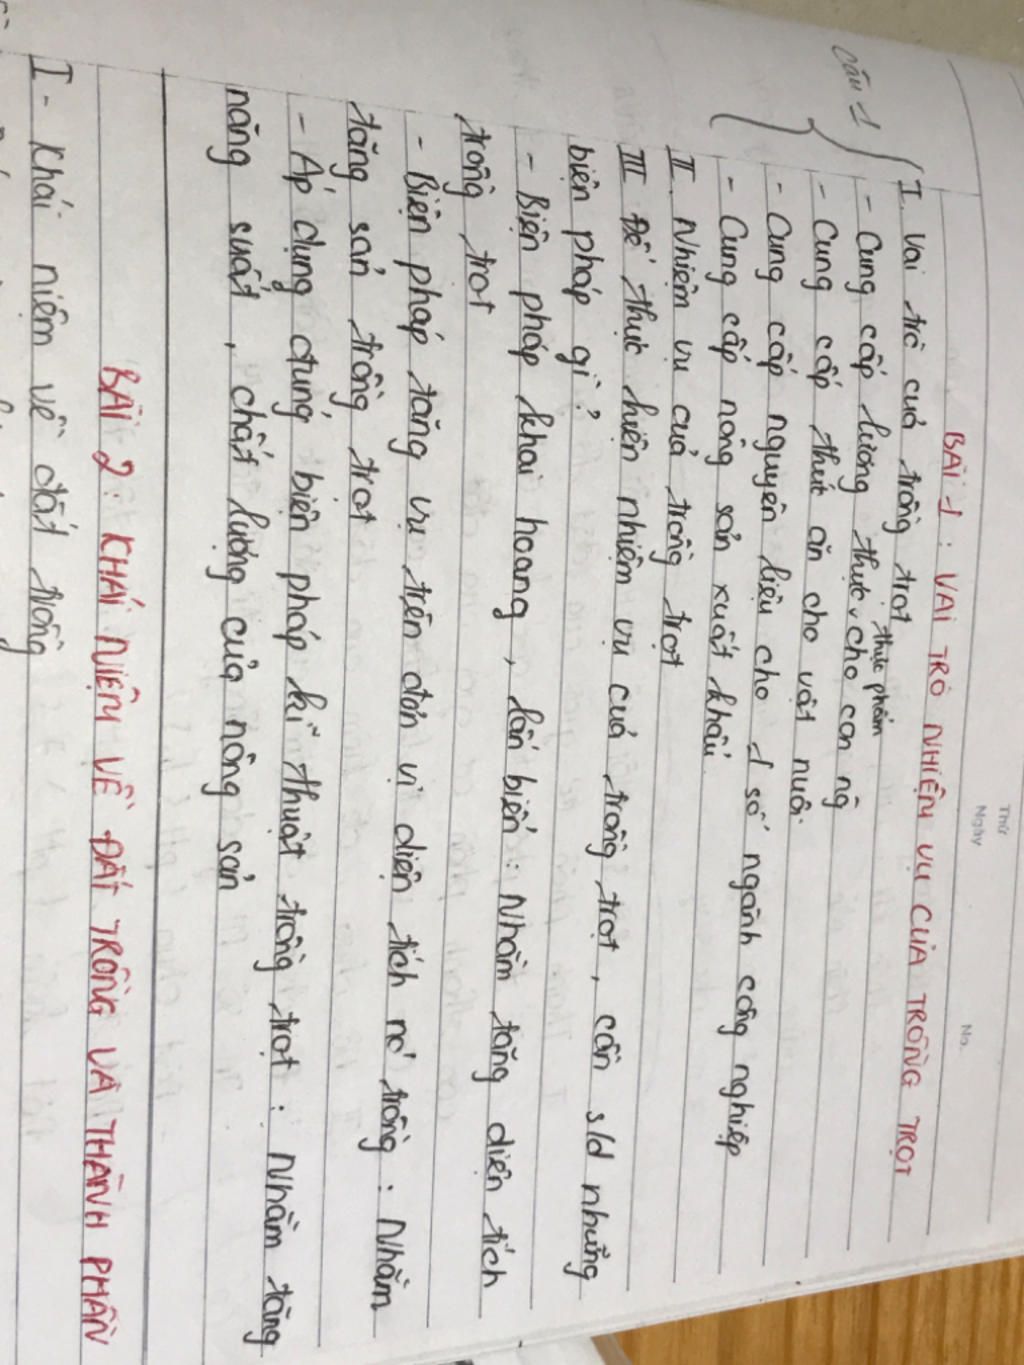 Thứ
Ngày
No.
BÀI 1 : VAI TRÒ NHIỆM VỤ CỦA TRỒNG TRỌT
câu 1
I. Vai trò của trồng trọt
- Cung cấp lương thực, thực phẩm cho con ng
- Cung cấp thức ăn cho vật nuôi
- Cung cấp nguyên liệu cho 1 số ngành công nghiệp
- Cung cấp nông sản xuất khẩu
II. Nhiệm vụ của trồng trọt
III Để thực hiện nhiệm vụ của trồng trọt, cần s/d những
biện pháp gì?
- Biện pháp khai hoang, lấn biển : Nhằm tăng diện tích
trồng trọt
- Biện pháp tăng vụ trên đơn vị diện tích nó trồng : Nhằm
tăng sản trồng trọt
- Áp dụng đúng biện pháp kĩ thuật trồng trọt : Nhằm tăng
năng suất, chất lượng của nông sản
BÀI 2 : KHÁI NIỆM VỀ ĐẤT TRỒNG VÀ THÀNH PHẦN
I - Khái niệm về đất trồng